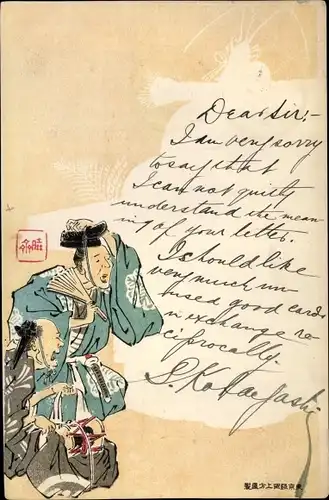 Dear Sir;-
I am very sorry
to say that
I can not quitly
understand the mean
ing of your letter.
I should like
very much un
used good cards
in exchange re
ciprocally.
S. Kobayashi